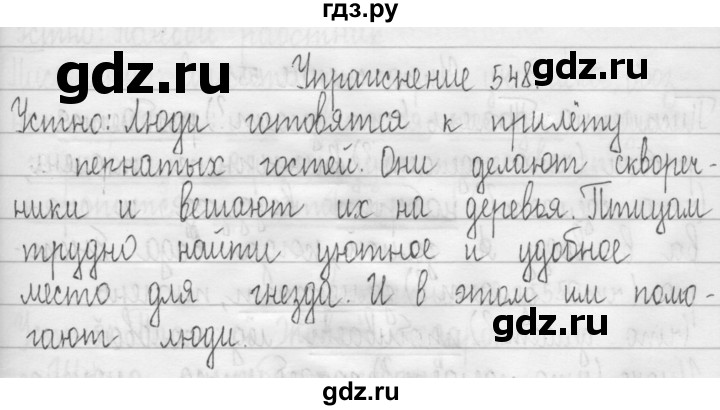 гдз.ру
gdz.ru
gdz.ru
Упражнение 548.
Устно: Люди готовятся к прилёту
пернатых гостей. Они делают сквореч-
ники и вешают их на деревья. Птицам
трудно найти уютное и удобное
место для гнезда. И в этом им помо-
гают люди.
gdz.ru
gdz.ru
gdz.ru